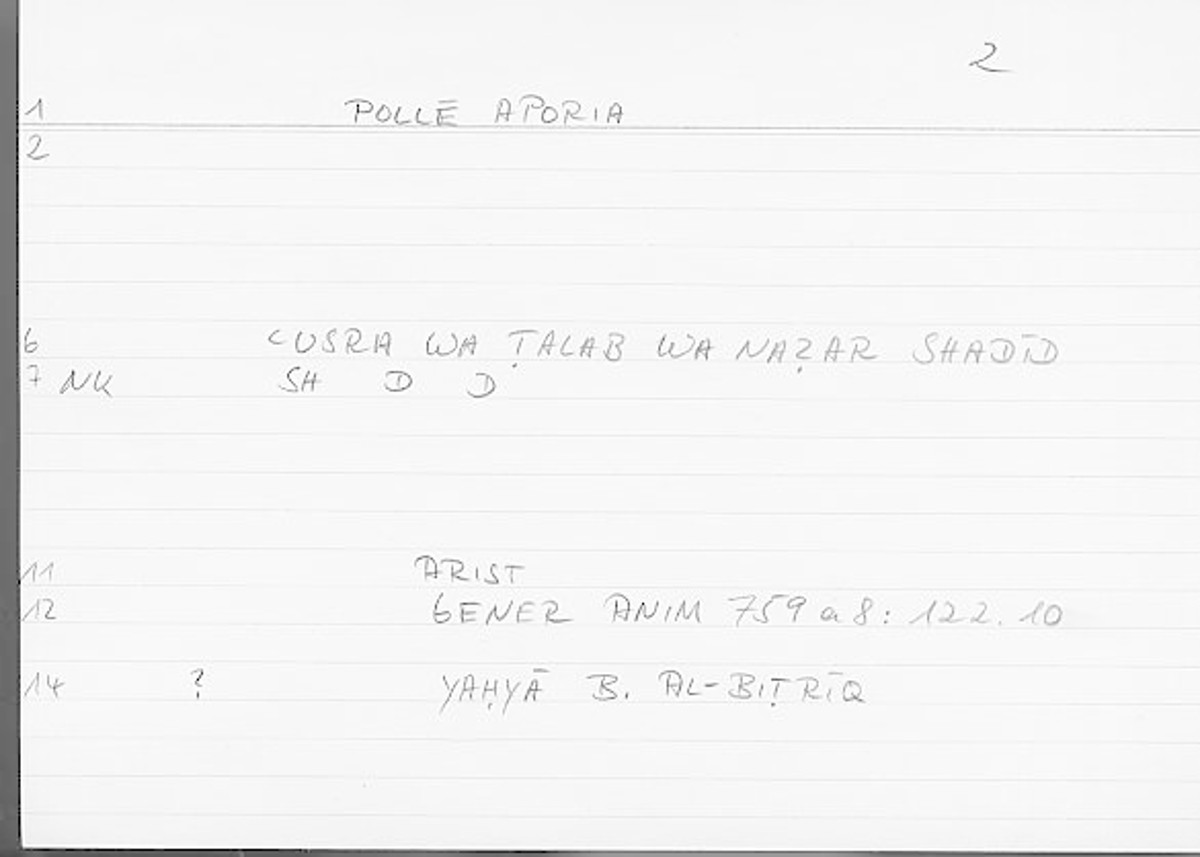 2
1 POLLĒ APORIA
2
6 ʿUSRA WA ṬALAB WA NAẒAR SHADĪD
7 NK SH D D
11 ARIST
12 GENER ANIM 759 a 8: 122. 10
14 ? YAḤYĀ B. AL-BIṬRĪQ